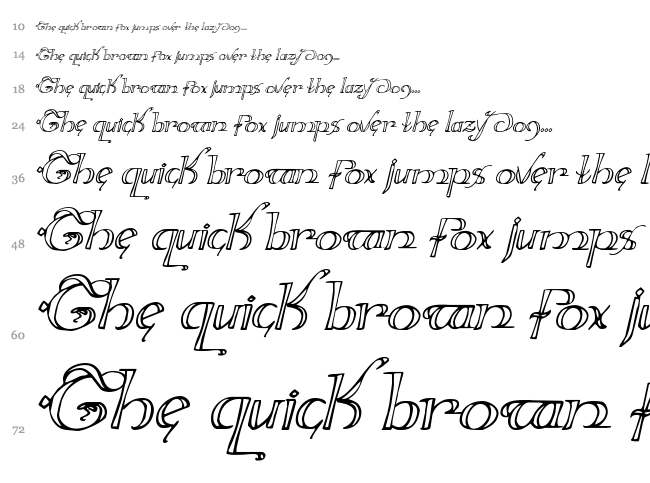 10 The quick brown fox jumps over the lazy dog...
14 The quick brown fox jumps over the lazy dog...
18 The quick brown fox jumps over the lazy dog...
24 The quick brown fox jumps over the lazy dog...
36 The quick brown fox jumps over the l
48 The quick brown fox jumps
60 The quick brown fox ju
72 The quick brown f